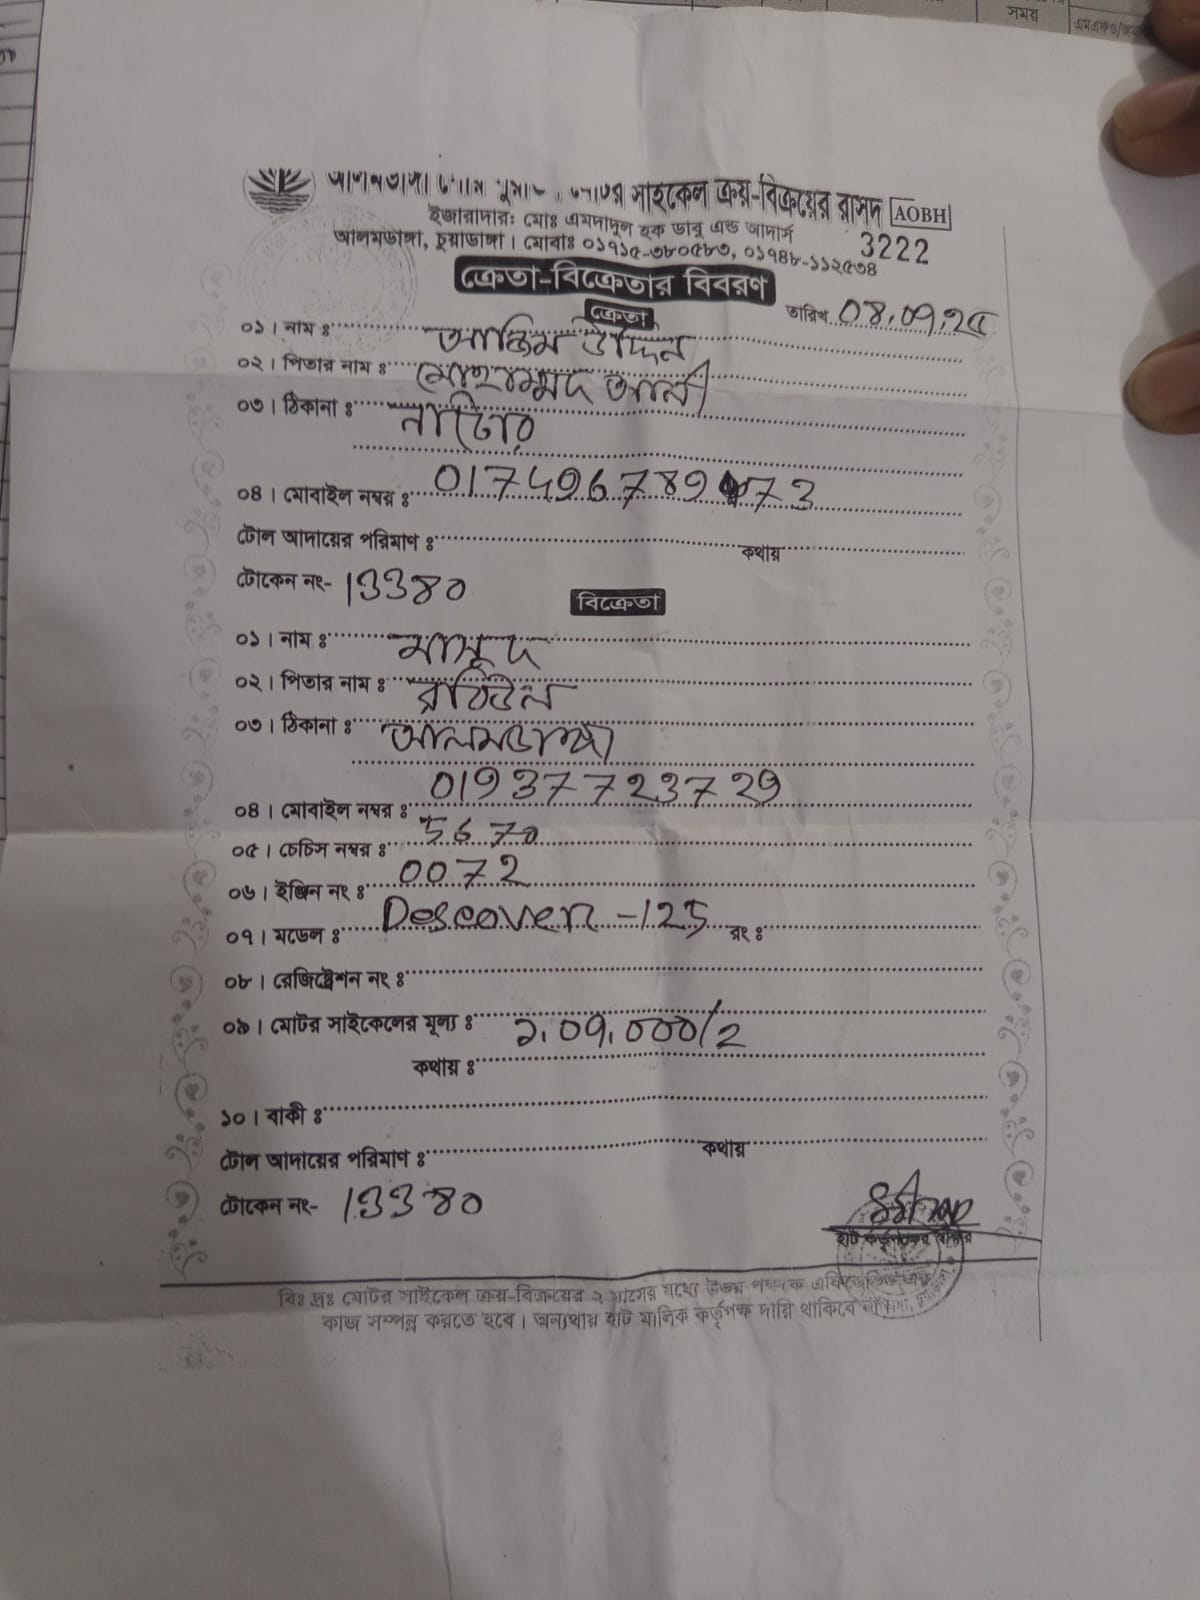 সময়
সাইকেল ক্রয়-বিক্রয়ের রসিদ AOBH
ইজারাদার: মোঃ এমদাদুল হক ডাবু এন্ড আদার্স
আলমডাঙ্গা, চুয়াডাঙ্গা । মোবাঃ ০১৯১৫-৩৮০৫৮৩, ০১৭৪৮-১১২৫৩৪
3222
ক্রেতা-বিক্রেতার বিবরণ
ক্রেতা
তারিখ 08.09.২৫
০১। নাম ঃ উদ্দিন
০২। পিতার নাম ঃ মোহাম্মদ আলী
০৩। ঠিকানা ঃ নাটোর
০৪। মোবাইল নম্বর ঃ
টোল আদায়ের পরিমাণ ঃ কথায়
টোকেন নং- 133৪0
বিক্রেতা
০১। নাম ঃ মাসুদ
০২। পিতার নাম ঃ
০৩। ঠিকানা ঃ আলমডাঙ্গা
০৪। মোবাইল নম্বর ঃ 01937723729
০৫। চেচিস নম্বর ঃ 5670
০৬। ইঞ্জিন নং ঃ 0072
০৭। মডেল ঃ Descover -125 রং ঃ
০৮। রেজিষ্ট্রেশন নং ঃ
০৯। মোটর সাইকেলের মূল্য ঃ ১,09,000/2
কথায় ঃ
১০। বাকী ঃ
টোল আদায়ের পরিমাণ ঃ কথায়
টোকেন নং- 133৪0
হাট কর্তৃপক্ষের স্বাক্ষর
বিঃ দ্রঃ মোটর সাইকেল ক্রয়-বিক্রয়ের ২ মাসের মধ্যে উভয় পক্ষকে
কাজ সম্পন্ন করতে হবে। অন্যথায় হাট মালিক কর্তৃপক্ষ দায়ি থাকিবে